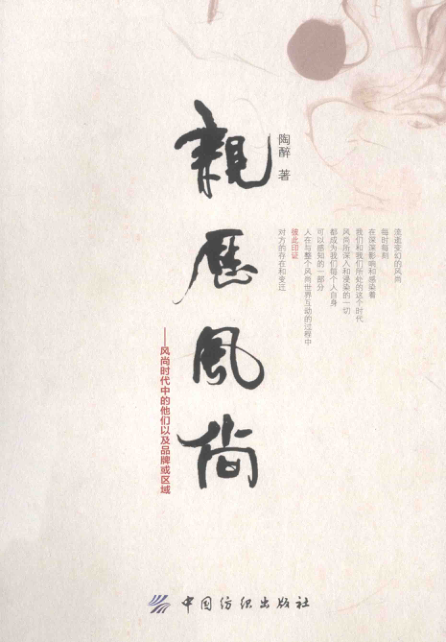 親歷風尚
陶醉 著
流逝变幻的风尚
每时每刻
在深深影响和感染着
我们和我们所处的这个时代
风尚所深入和浸染的一切
都成为我们每个人自身
可以感知的一部分
人在与整个风尚世界互动的过程中
彼此印证
对方的存在和变迁
——风尚时代中的他们以及品牌或区域
中国纺织出版社